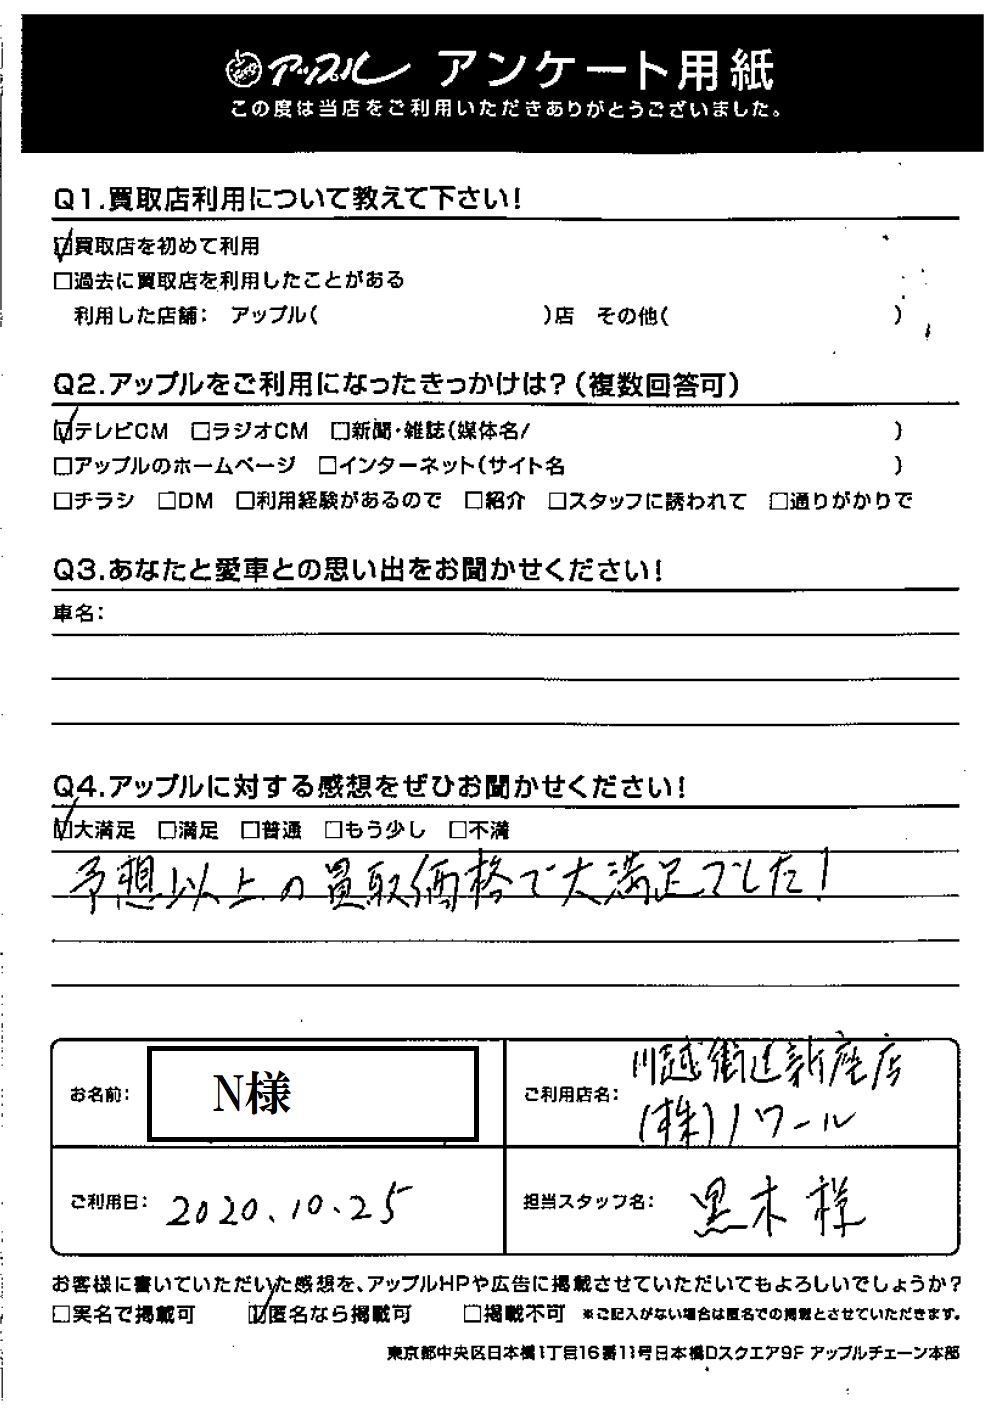 アップル アンケート用紙
この度は当店をご利用いただきありがとうございました。
Q1.買取店利用について教えて下さい!
☑買取店を初めて利用
□過去に買取店を利用したことがある
利用した店舗: アップル( )店 その他( )
Q2.アップルをご利用になったきっかけは?(複数回答可)
☑テレビCM □ラジオCM □新聞・雑誌(媒体名/ )
□アップルのホームページ □インターネット(サイト名 )
□チラシ □DM □利用経験があるので □紹介 □スタッフに誘われて □通りがかりで
Q3.あなたと愛車との思い出をお聞かせください!
車名:
Q4.アップルに対する感想をぜひお聞かせください!
☑大満足 □満足 □普通 □もう少し □不満
予想以上の買取価格で大満足でした!
お名前: N様
ご利用店名: 川越街道新座店
(株)ノワール
ご利用日: 2020.10.25
担当スタッフ名: 黒木様
お客様に書いていただいた感想を、アップルHPや広告に掲載させていただいてもよろしいでしょうか?
□実名で掲載可 ☑匿名なら掲載可 □掲載不可 ※ご記入がない場合は匿名での掲載とさせていただきます。
東京都中央区日本橋1丁目16番11号日本橋Dスクエア9F アップルチェーン本部